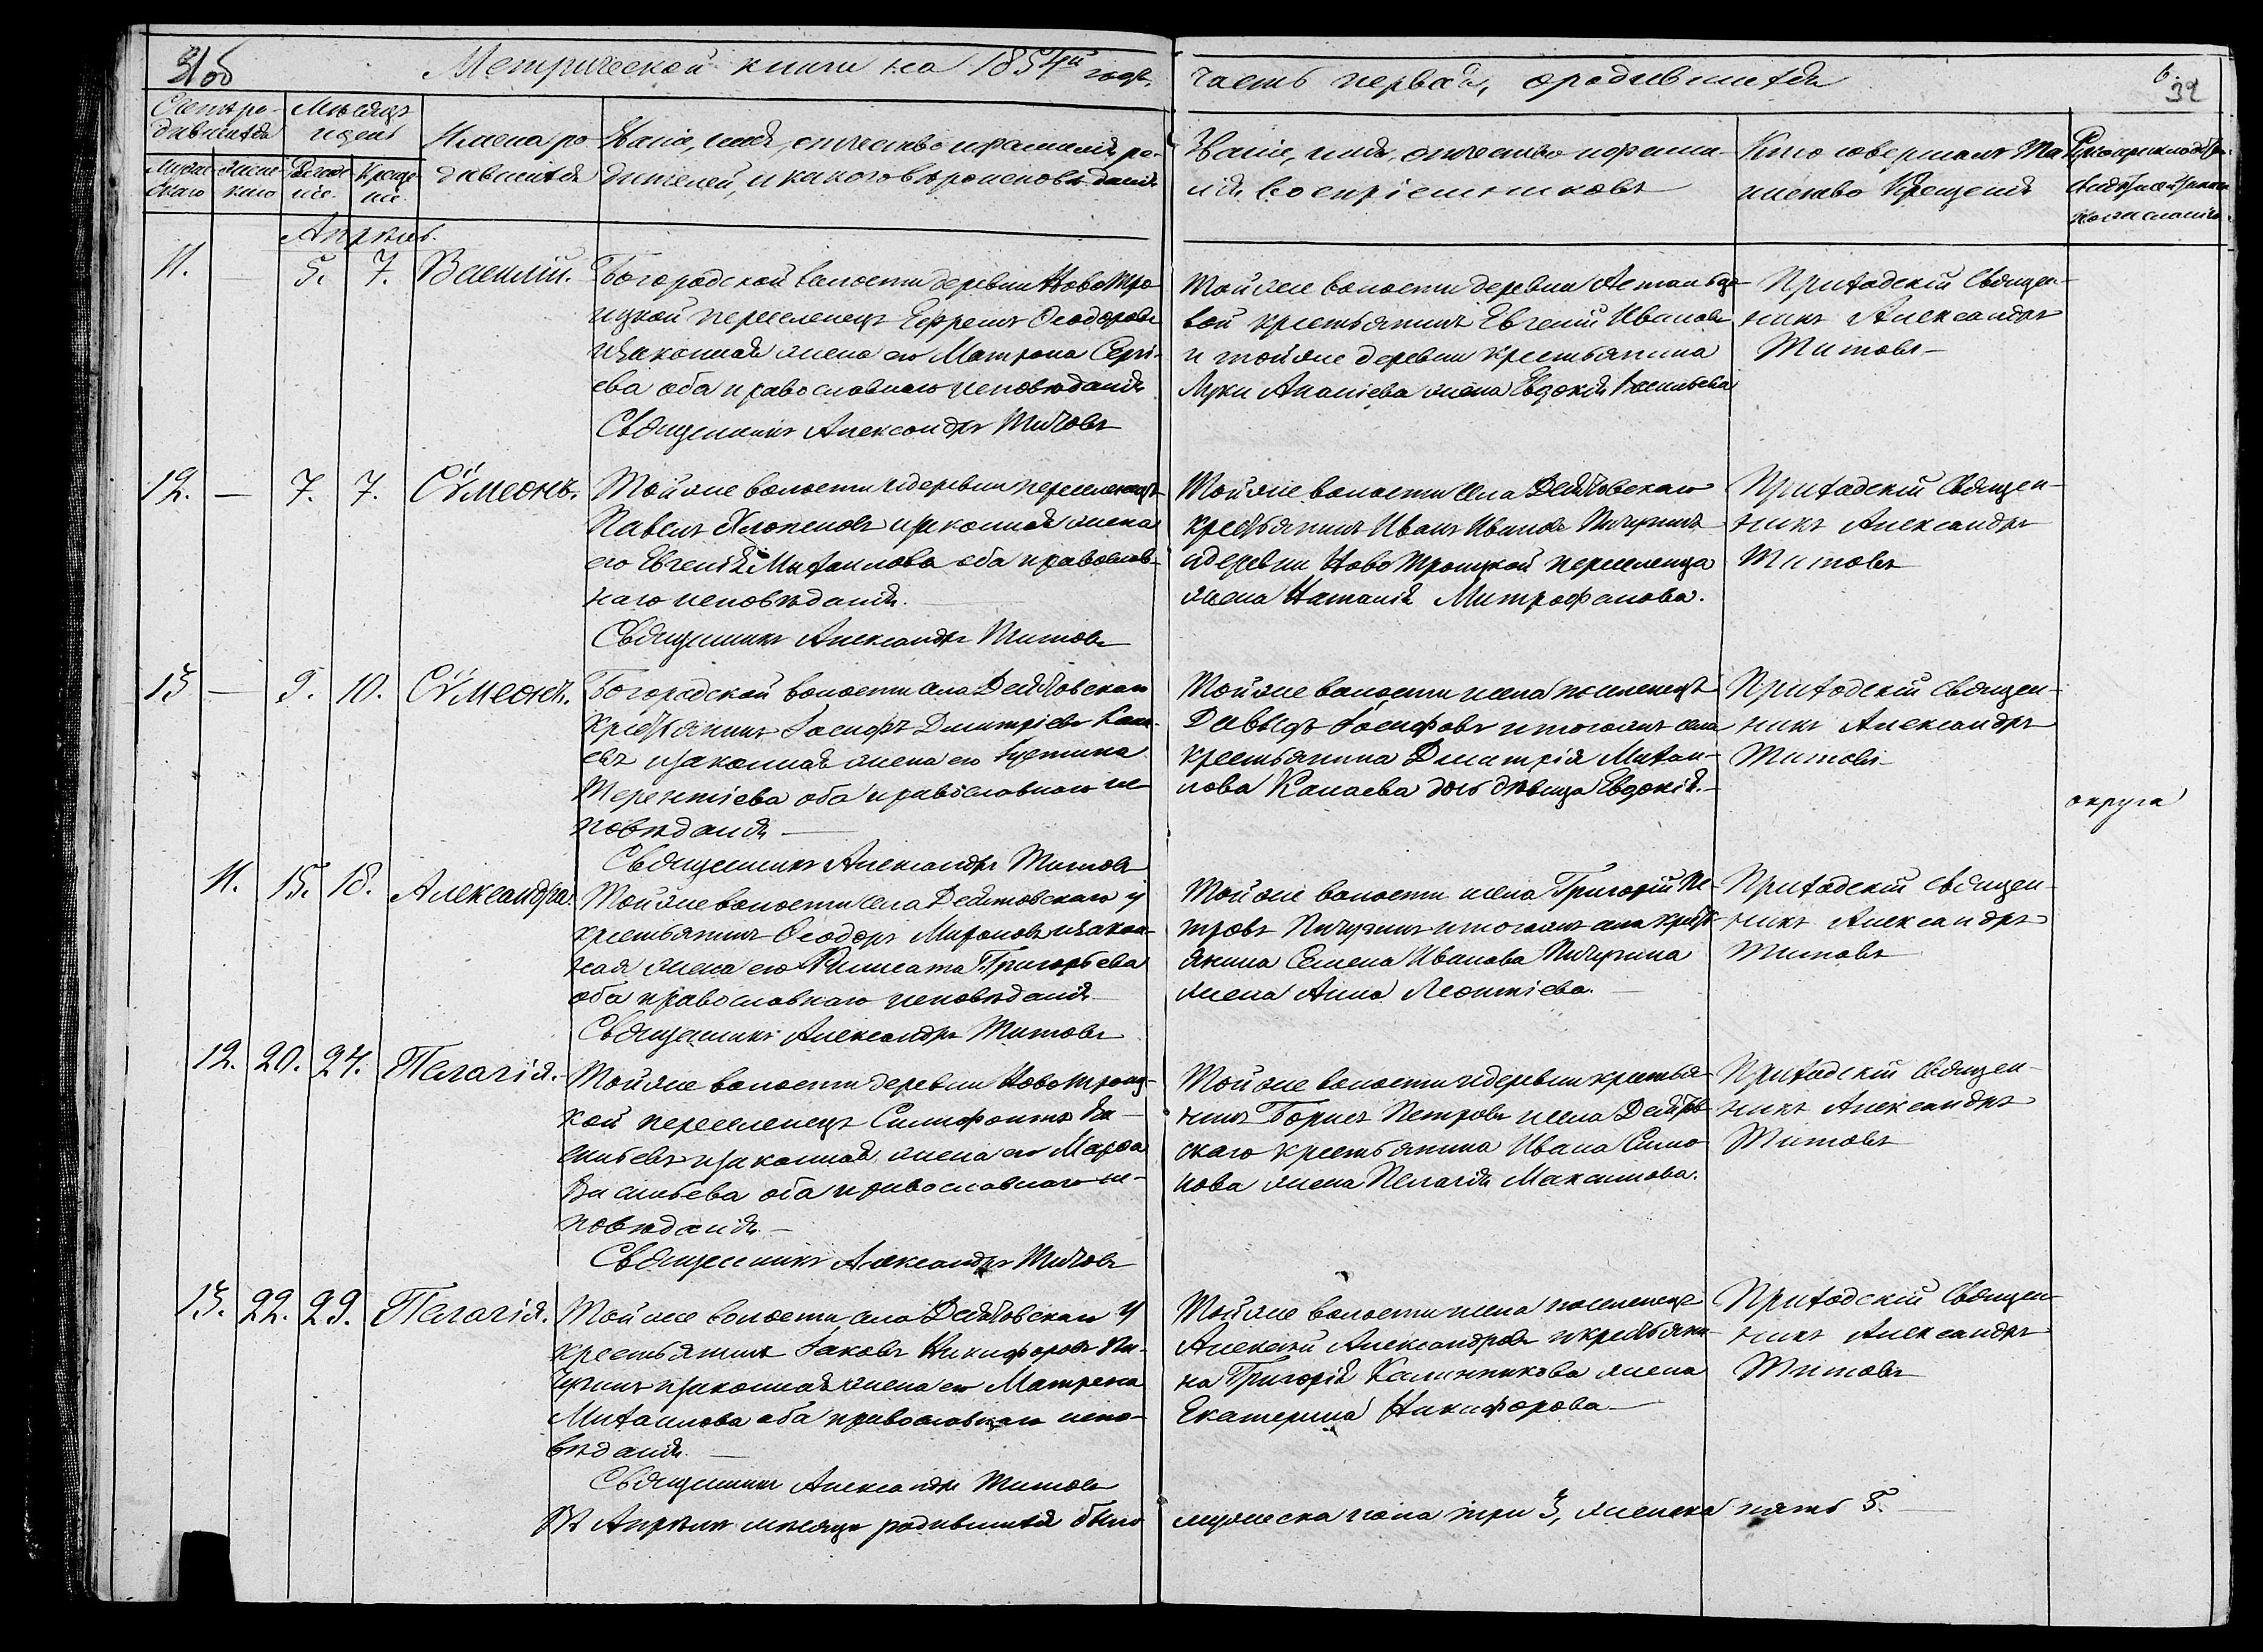 31об
Метрической книги на 1854й годъ,
часть первая, о родившихся
6.
32
Счетъ ро-
дившихся
Мѣсяцъ
и день
Имена ро-
дившихся
Званіе, имя, отчество и фамилія ро-
дителей, и какого вѣроисповѣданія
Званіе, имя, отчество и фами-
лія воспріемниковъ
Кто совершалъ Та-
инство Крещенія
Мужес-
каго
Женс-
каго
Рожде-
ніе.
Креще-
ніе
Апрѣль.
11.
—
5.
7.
Василій.
Богородской волости деревни Ново Тро-
ицкой переселенецъ Ефремъ Ѳеодоровъ
и законная жена его Матрона Сергі-
ева оба православнаго исповѣданія
Священникъ Александръ Титовъ
Той же волости деревни
вой крестьянинъ Евгеній Ивановъ
и той же деревни крестьянина
Луки Ананіева жена Евдокія Васильева
Приходскій Священ-
никъ Александръ
Титовъ
12.
—
7.
7.
Сѵмеонъ.
Той же волости и деревни переселенецъ
Павелъ и законная жена
его Евгенія Михаилова оба православ-
наго исповѣданія.
Священникъ Александръ Титовъ
Той же волости села Дейтовскаго
крестьянинъ Иванъ Ивановъ Пичугинъ
и деревни Ново Троицкой переселенца
жена Наталія Митрофанова.
Приходскій Священ-
никъ Александръ
Титовъ
13
—
9.
10.
Сѵмеонъ.
Богородской волости села Дейтовскаго
крестьянинъ Іосифъ Дмитріевъ Кана-
евъ и законная жена его Іустина
Терентіева оба православнаго ис-
повѣданія —
Священникъ Александръ Титовъ
Той же волости и села поселенецъ
Давыдъ Іосифовъ и тогожъ села
крестьянина Дмитрія Михаи-
лова Канаева дочь дѣвица Евдокія.
Приходскій Священ-
никъ Александръ
Титовъ
округа
11.
15.
18.
Александра.
Той же волости села Дейтовскаго
крестьянинъ Ѳеодоръ Мироновъ и закон-
ная жена его Григорьева
оба православнаго исповѣданія.
Священникъ Александръ Титовъ
Той же волости и села Григорій Пе-
тровъ Пичугинъ и тогожъ села крест-
янина Семена Иванова Пичугина
жена Анна Леонтіева.
Приходскій Священ-
никъ Александръ
Титовъ
12.
20.
24.
Пелагія.
Той же волости деревни Ново Троиц-
кой переселенецъ Ва-
сильевъ и законная жена его Марѳа
Васильева оба православнаго ис-
повѣданія —
Священникъ Александръ Титовъ
Той же волости и деревни крестья-
нинъ Борисъ Петровъ и села Дейтов-
скаго крестьянина Ивана Симо-
нова жена Пелагія Максимова.
Приходскій Священ-
никъ Александръ
Титовъ
13.
22.
29.
Пелагія.
Той же волости села Дейтовскаго
крестьянинъ Іаковъ Никифоровъ Пи-
чугинъ и законная жена его Матрена
Михаилова оба православнаго испо-
вѣданія. —
Священникъ Александръ Титовъ
Той же волости и села поселенецъ
Алексѣй Александровъ и крестьяни-
на Григорія Калинникова жена
Екатерина Никифорова —
Приходскій Священ-
никъ Александръ
Титовъ
Въ Апрѣлѣ мѣсяцѣ родившихся было
мужеска пола три 3, женска пять 5.